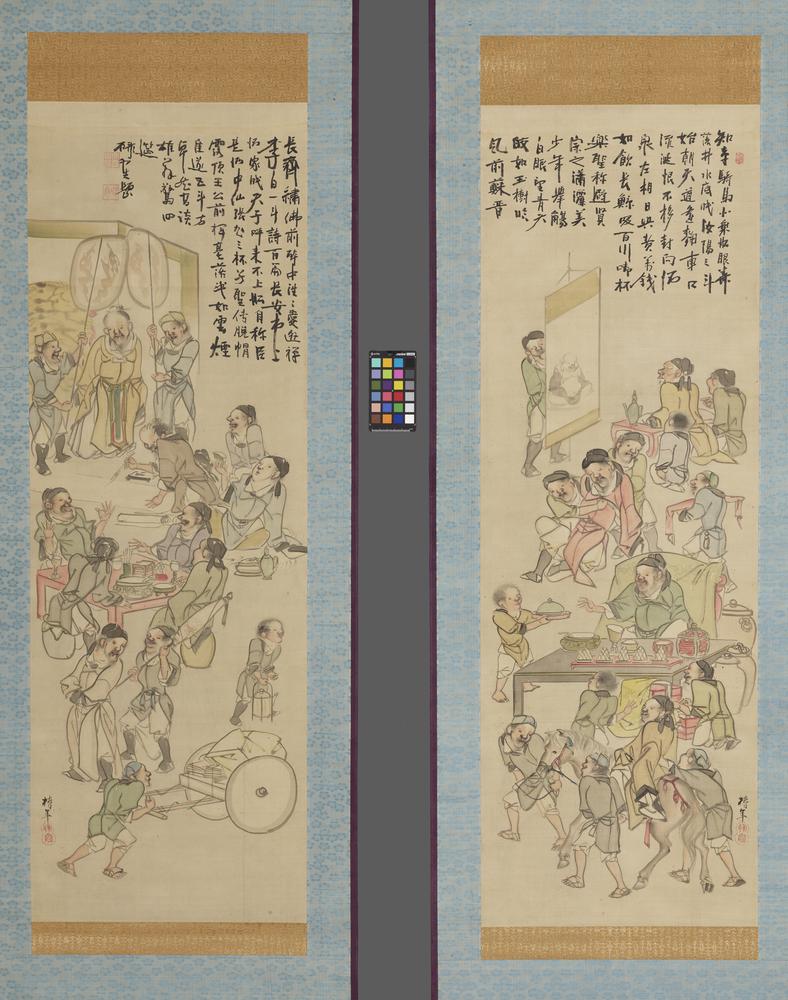 知章騎馬似乘船眼花
落井水底眠汝陽三斗
始朝天道逢麴車口
流涎恨不移封向酒
泉左相日興費萬錢
如飲長鯨吸百川啣杯
樂聖称避賢
宗之瀟灑美
少年舉觴
白眼望青天
皎如玉樹臨
風前蘇晉
椿年
長齋繡佛前醉中往々愛逃禅
李白一斗詩百篇長安市上
酒家眠天子呼来不上船自称臣
是酒中仙張旭三杯草聖傳脱帽
露頂王公前揮毫落紙如雲煙
焦遂五斗方
卓然高談
雄弁驚四
筵
椿年